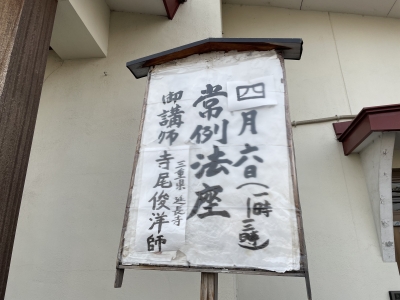 四月六日(一時―三時)
常例法座
御講師
三重県 延長寺
寺尾俊洋師